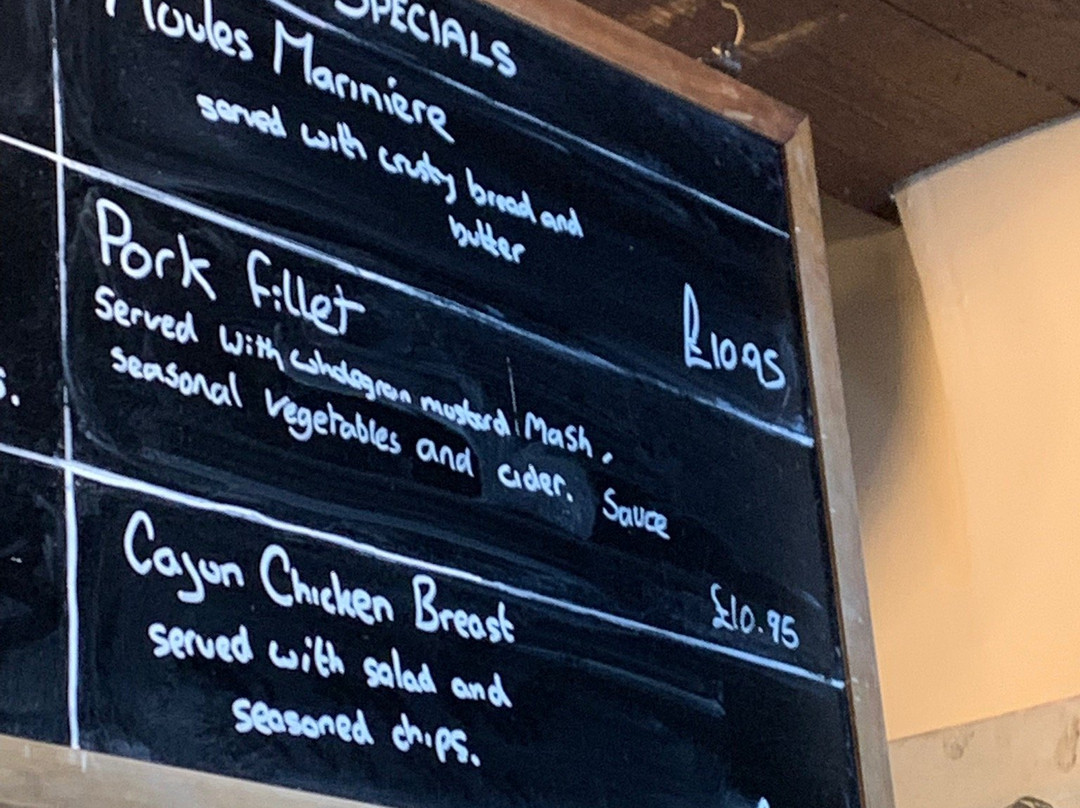 SPECIALS
Moules Mariniere
served with crusty bread and
butter
£10.95
Pork fillet
Served with wholegrain mustard Mash,
seasonal vegetables and cider. Sauce
£10.95
Cajun Chicken Breast
served with salad and
seasoned chips.